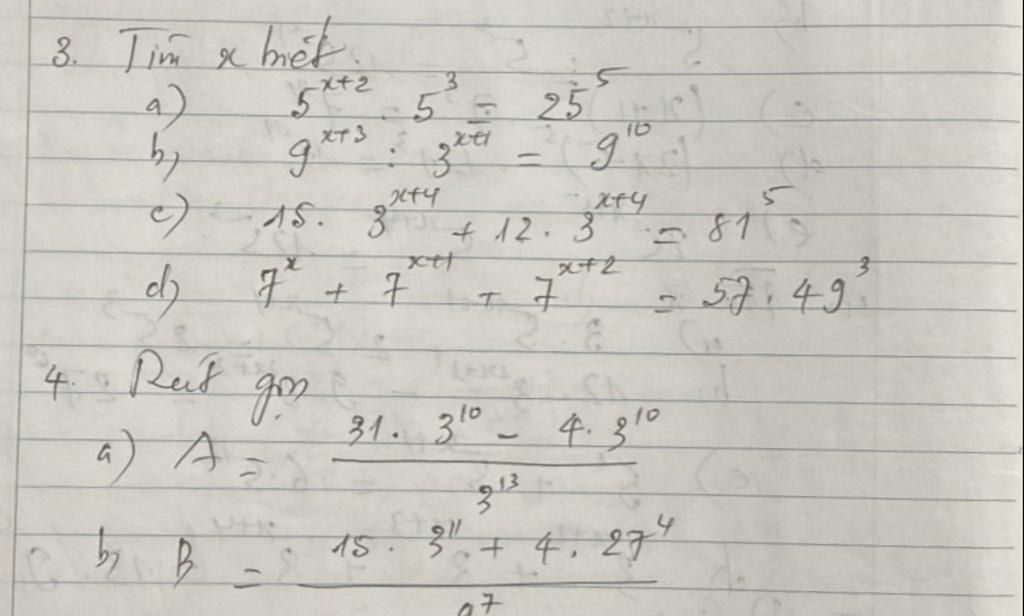 3. Tìm x biết.
a) 5^{x+2} . 5^3 = 25^5
b) 9^{x+3} : 3^{x+1} = 9^{10}
c) 15. 3^{x+4} + 12 . 3^{x+4} = 81^5
d) 7^x + 7^{x+1} + 7^{x+2} = 57 . 49^3
4. Rút gọn
a) A = \frac{31. 3^{10} - 4. 3^{10}}{3^{13}}
b) B = \frac{15. 3^{11} + 4. 27^4}{9^7}